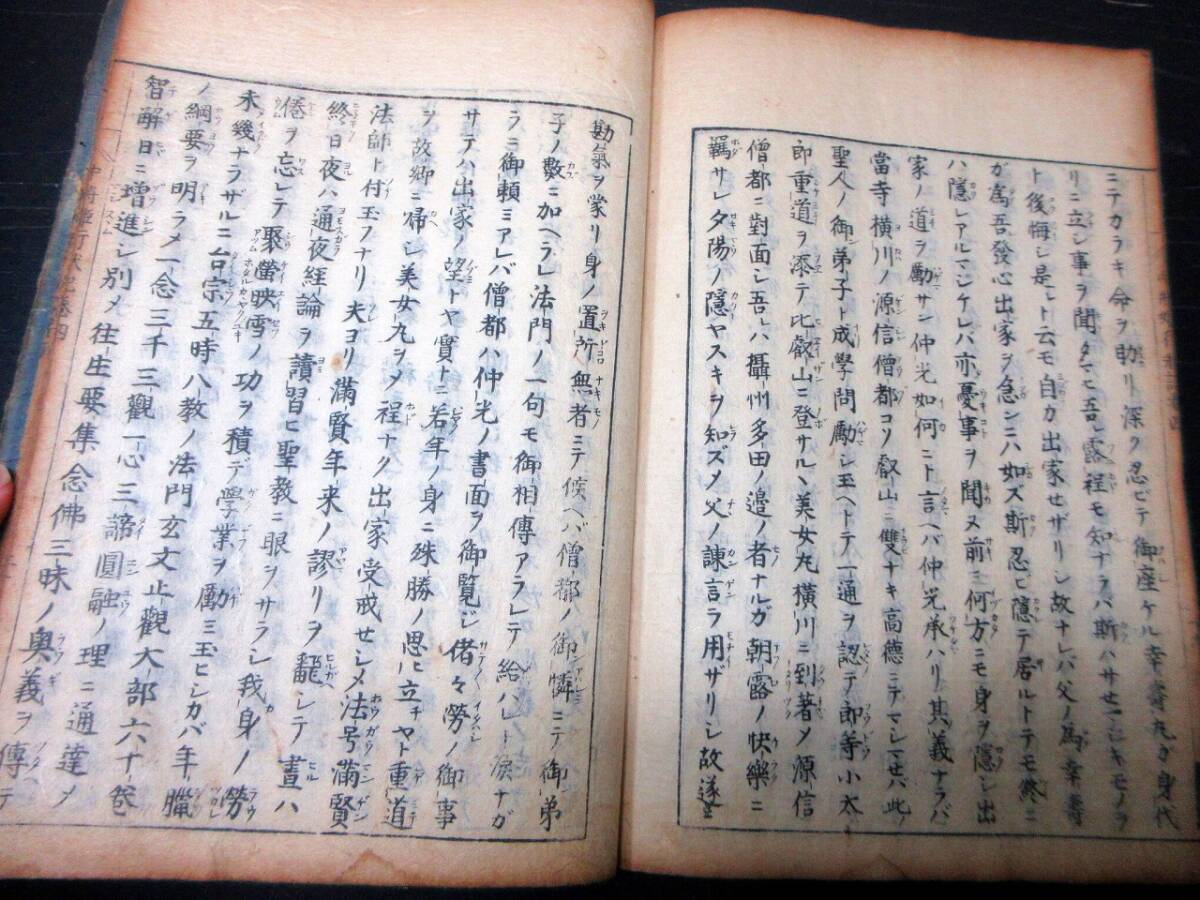 ニテカラキ命ヲ助リ深ク忍ビテ御座ケル幸壽丸ガ身代
リニ立シ事ヲ聞タマヒ吾レ露程モ知ナラバ斯ハサセマジキモノヲ
ト後悔シ是レト云モ自カ出家セザリシ故ナレバ父ノ為幸壽
ガ為吾發心出家ヲ急ンニハ如ズ斯忍ビ隠テ居ルトテモ終ニ
ハ隠レアルマジケレバ亦憂事ヲ聞ヌ前ニ何方ニモ身ヲ隠シ出
家ノ道ヲ勵サン仲光如何ニト言ヘバ仲光承ハリ其義ナラバ
當寺横川ノ源信僧都コソ叡山ニ雙ナキ高德ニテマシマセハ此
聖人ノ御弟子ト成學問勵シ玉ヘトテ一通ヲ認テ郎等小太
郎重道ヲ添テ比叡山ニ登サル丶美女丸横川ニ到著メ源信
僧都ニ對面シ吾レハ攝州多田ノ邉ノ者ナルガ朝露ノ快樂ニ
羈サレ夕陽ノ隠ヤスキヲ知ズメ父ノ諫言ラ用ザリシ故遂ニ
勘氣ヲ蒙リ身ノ置所無者ニテ候ヘバ僧都ノ御憐ニテ御弟
子ノ數ニ加ヘラレ法門ノ一句モ御相傳アラレテ給ハレト涙ナガ
ラニ御頼ミアレバ僧都ハ仲光ノ書面ラ御覧ジ偖々勞ノ御事
サテハ出家ノ望トヤ實ト二若年ノ身ニ殊勝ノ思ヒ立チヤト重道
ヲ故郷ニ帰シ美女丸ヲメ程ナク出家受戒セシメ法号満賢
法師ト付玉フナリ夫ヨリ満賢年来ノ謬リヲ飜シテ晝ハ
終日夜ハ通夜經論ヲ讀習ヒ聖教ニ眼ヲサラシ我身ノ勞
倦ヲ忘レテ聚螢映雪ノ功ヲ積デ學業ヲ勵ミ玉ヒシカバ年臘
未幾ナラザルニ台宗五時八教ノ法門玄文止觀大部六十巻
ノ綱要ヲ明ラメ一念三千三觀一心三諦圓融ノ理ニ通達メ
智解日ニ増進シ別メ往生要集念佛三昧ノ奥義ヲ傳テ